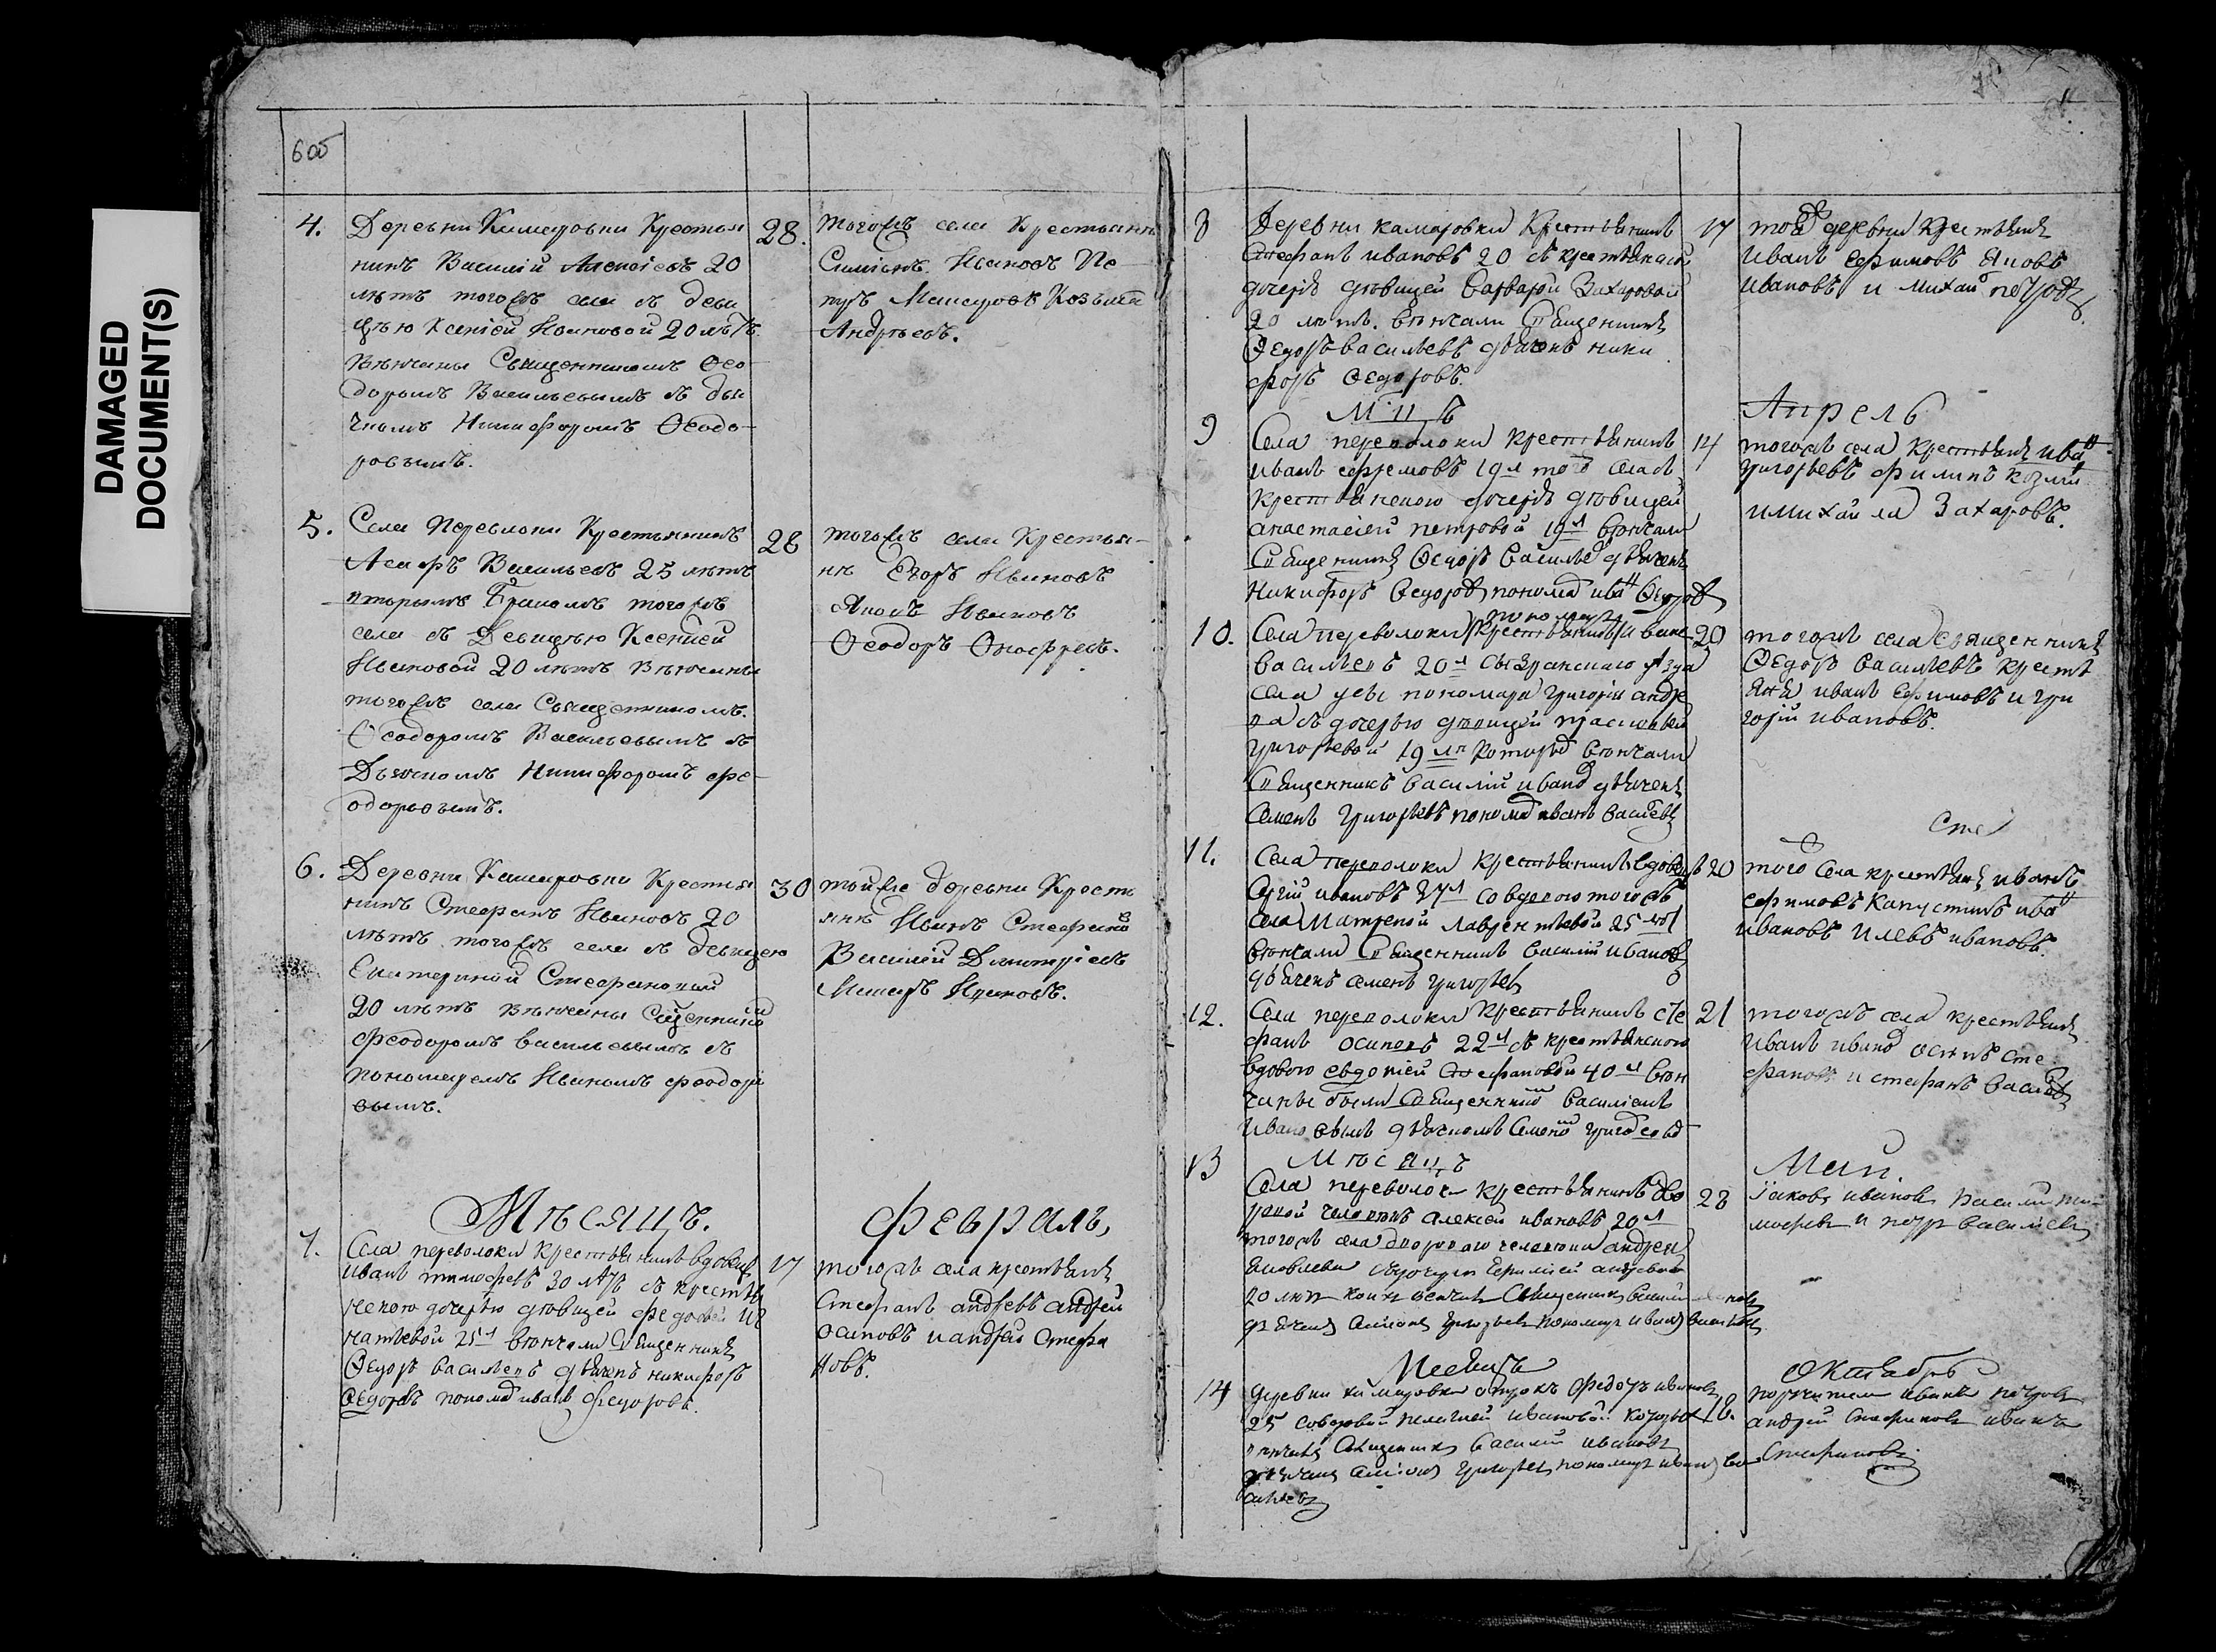 DAMAGED
DOCUMENT(S)
6об
4. Деревни Камаровки Крестья
нинъ Василiй Алексiевъ 20
лѣтъ тогожъ села съ деви
цѣю Ксенiей Ивановой 20 лѣтъ
Вѣнчаны Священникомъ Ѳео
доромъ Васильевымъ съ дья
чкомъ Никифоромъ Ѳеодо-
ровымъ.
28.
тогожъ села Крестьянинъ
Симiонъ Ивановъ Пе
тръ Макаровъ Козьма
Андрѣевъ.
5. Села Переволоки Крестьянинъ
Васильевъ 25 лѣтъ
вторымъ бракомъ тогожъ
села съ Девицѣю Ксенiей
Ивановой 20 лѣтъ Вѣнчаны
тогожъ села Священникомъ.
Ѳеодоромъ Васильевымъ съ
Дьячкомъ Никифоромъ Фе-
одоровымъ.
28
тогожъ села Крестья-
не Егоръ Ивановъ
Яковъ Ивановъ
Ѳеодоръ Онофреевъ.
6. Деревни Камаровки Крестья
нинъ Стефанъ Ивановъ 20
лѣтъ тогожъ села съ девицею
Екатериной Стефановой
20 лѣтъ вѣнчаны Сщенникомъ
Феодоромъ Васильевымъ съ
пономаремъ Иваномъ Феодоро
вымъ.
30
тойже деревни Кресть
яне Иванъ Стефановъ
Василiй Димитрiевъ
Ивановъ.
Мѣсяцъ.
Февраль,
7. Села переволоки крестьянинъ вдовецъ
иванъ тимофевъ 30 лѣтъ съ крестья
нскою дочерью девицей федосьей иг
натьевой 25 л вѣнчали священникъ
Ѳедоръ васильевъ дьячекъ никифоръ
Ѳедоровъ поном иванъ Федоровъ.
17
тогожъ села крестьяня
Стефанъ андревъ андрей
осиповъ и андрей стефа
новъ.
8 Деревни камаровки Крестьянинъ
Стефанъ ивановъ 20 съ крестьянскою
дочерью девицей варварой Захаровой
20 летъ. вѣнчали священникъ
Ѳедоръ васильевъ дьячекъ ники
форъ Ѳедоровъ.
17
той деревни крестьяня
Иванъ Ефимовъ Яковъ
ивановъ и михаи петровъ
М цъ
Апрель
9 Села переволоки крестьянинъ
иванъ ефремовъ 19 л того села съ
крестьянскою дочерью девицей
анастасiей петровой 19 л вѣнчали
священникъ Ѳедоръ василье дьячекъ
Никифоръ Ѳедоров поном ива Ѳедоров
14
тогожъ села крестьяня ива
григорьевъ филипъ козми
и михайла Захаровъ.
пономарь
10. Села переволоки крестьянинъ иванъ
васильевъ 20 л сызранскаго уезда
села усы пономаря григорiя андре
ва съ дочерью девицей прасковьей
григорьевой 19 л которыхъ вѣнчали
священникъ василiй иванов дьячекъ
Семенъ григорьевъ поном иванъ василевъ
20
тогожъ села священникъ
Ѳедоръ васильевъ кресть
яня иванъ ефимовъ и гри
горiй ивановъ.
Сте
11. Села переволоки крестьянинъ вдовецъ
Сергiй ивановъ 27 л со вдовою тогожъ
села Матреной Лаврентьевой 25 лѣт
вѣнчали священникъ василiй иванов
дьячекъ семенъ григорьев
20
того села крестьяня иванъ
ефимовъ Капустинъ ива
ивановъ и левъ ивановъ.
12. Села переволоки крестьянинъ сте
фанъ осиповъ 22 л съ крестьянскою
вдовою евдокiей стефановой 40 л вѣн
чаны были священник василiемъ
ивановымъ дьячкомъ семено григорьевы
21
тогожъ села крестьяня
иванъ иванов осипъ сте
фановъ и стефанъ василев
Мѣсяцъ
Май.
13 Села переволок крестьянинъ дво
ровой человекъ алексей ивановъ 20 л
тогожъ села двороваго человека андрея
яковлева
20 летъ коихъ венчалъ священникъ василий ивановъ
дьячекъ Симiонъ григорьевъ пономарь иванъ васильевъ
28
Iаковъ ивановъ васили ти
мофеевъ и петръ василиевъ
Месяцъ
Октябрь
14 деревни камаровки отрокъ федоръ ивановъ
25 со вдовой пелагией ивановой которыхъ
венчалъ священникъ василий ивановъ
дьячекъ Симiонъ григорьевъ пономарь иванъ ва
сильевъ
18.
поручители иванъ петровъ
андрей Стефановъ иванъ
Стефановъ